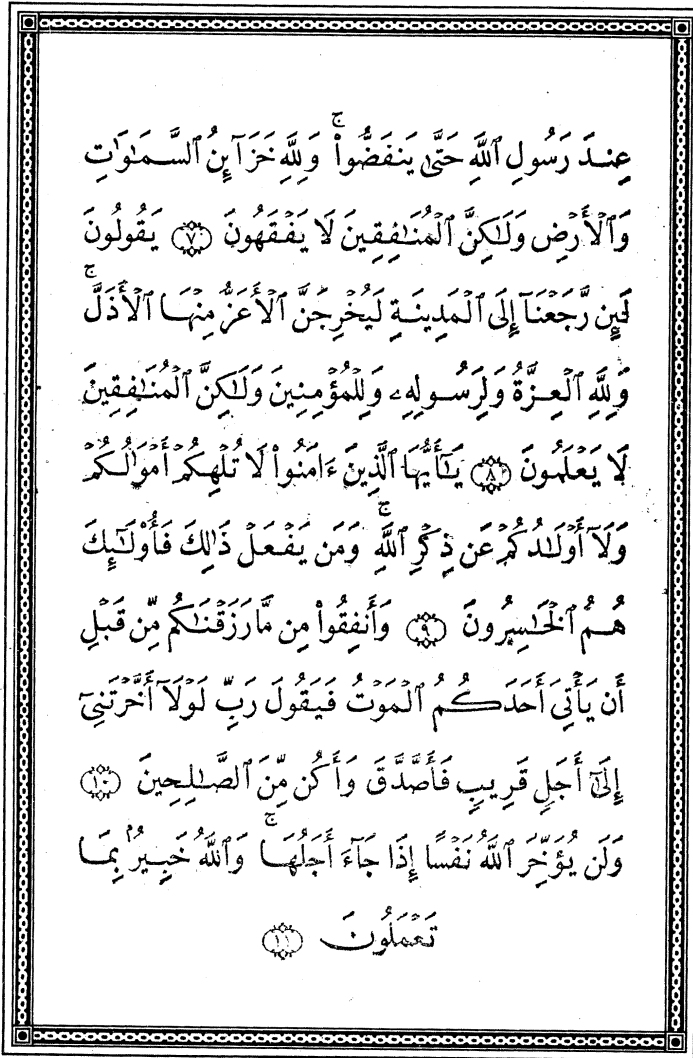 عِندَ رَسُولِ ٱللَّهِ حَتَّىٰ يَنفَضُّوا۟ ۚ وَلِلَّهِ خَزَآئِنُ ٱلسَّمَـٰوَٰتِ
وَٱلْأَرْضِ وَلَـٰكِنَّ ٱلْمُنَـٰفِقِينَ لَا يَفْقَهُونَ ﴿٧﴾ يَقُولُونَ
لَئِن رَّجَعْنَآ إِلَى ٱلْمَدِينَةِ لَيُخْرِجَنَّ ٱلْأَعَزُّ مِنْهَا ٱلْأَذَلَّ ۚ
وَلِلَّهِ ٱلْعِزَّةُ وَلِرَسُولِهِۦ وَلِلْمُؤْمِنِينَ وَلَـٰكِنَّ ٱلْمُنَـٰفِقِينَ
لَا يَعْلَمُونَ ﴿٨﴾ يَـٰٓأَيُّهَا ٱلَّذِينَ ءَامَنُوا۟ لَا تُلْهِكُمْ أَمْوَٰلُكُمْ
وَلَآ أَوْلَـٰدُكُمْ عَن ذِكْرِ ٱللَّهِ ۚ وَمَن يَفْعَلْ ذَٰلِكَ فَأُو۟لَـٰٓئِكَ
هُمُ ٱلْخَـٰسِرُونَ ﴿٩﴾ وَأَنفِقُوا۟ مِن مَّا رَزَقْنَـٰكُم مِّن قَبْلِ
أَن يَأْتِىَ أَحَدَكُمُ ٱلْمَوْتُ فَيَقُولَ رَبِّ لَوْلَآ أَخَّرْتَنِىٓ
إِلَىٰٓ أَجَلٍ قَرِيبٍ فَأَصَّدَّقَ وَأَكُن مِّنَ ٱلصَّـٰلِحِينَ ﴿١٠﴾
وَلَن يُؤَخِّرَ ٱللَّهُ نَفْسًا إِذَا جَآءَ أَجَلُهَا ۚ وَٱللَّهُ خَبِيرٌۢ بِمَا
تَعْمَلُونَ ﴿١١﴾